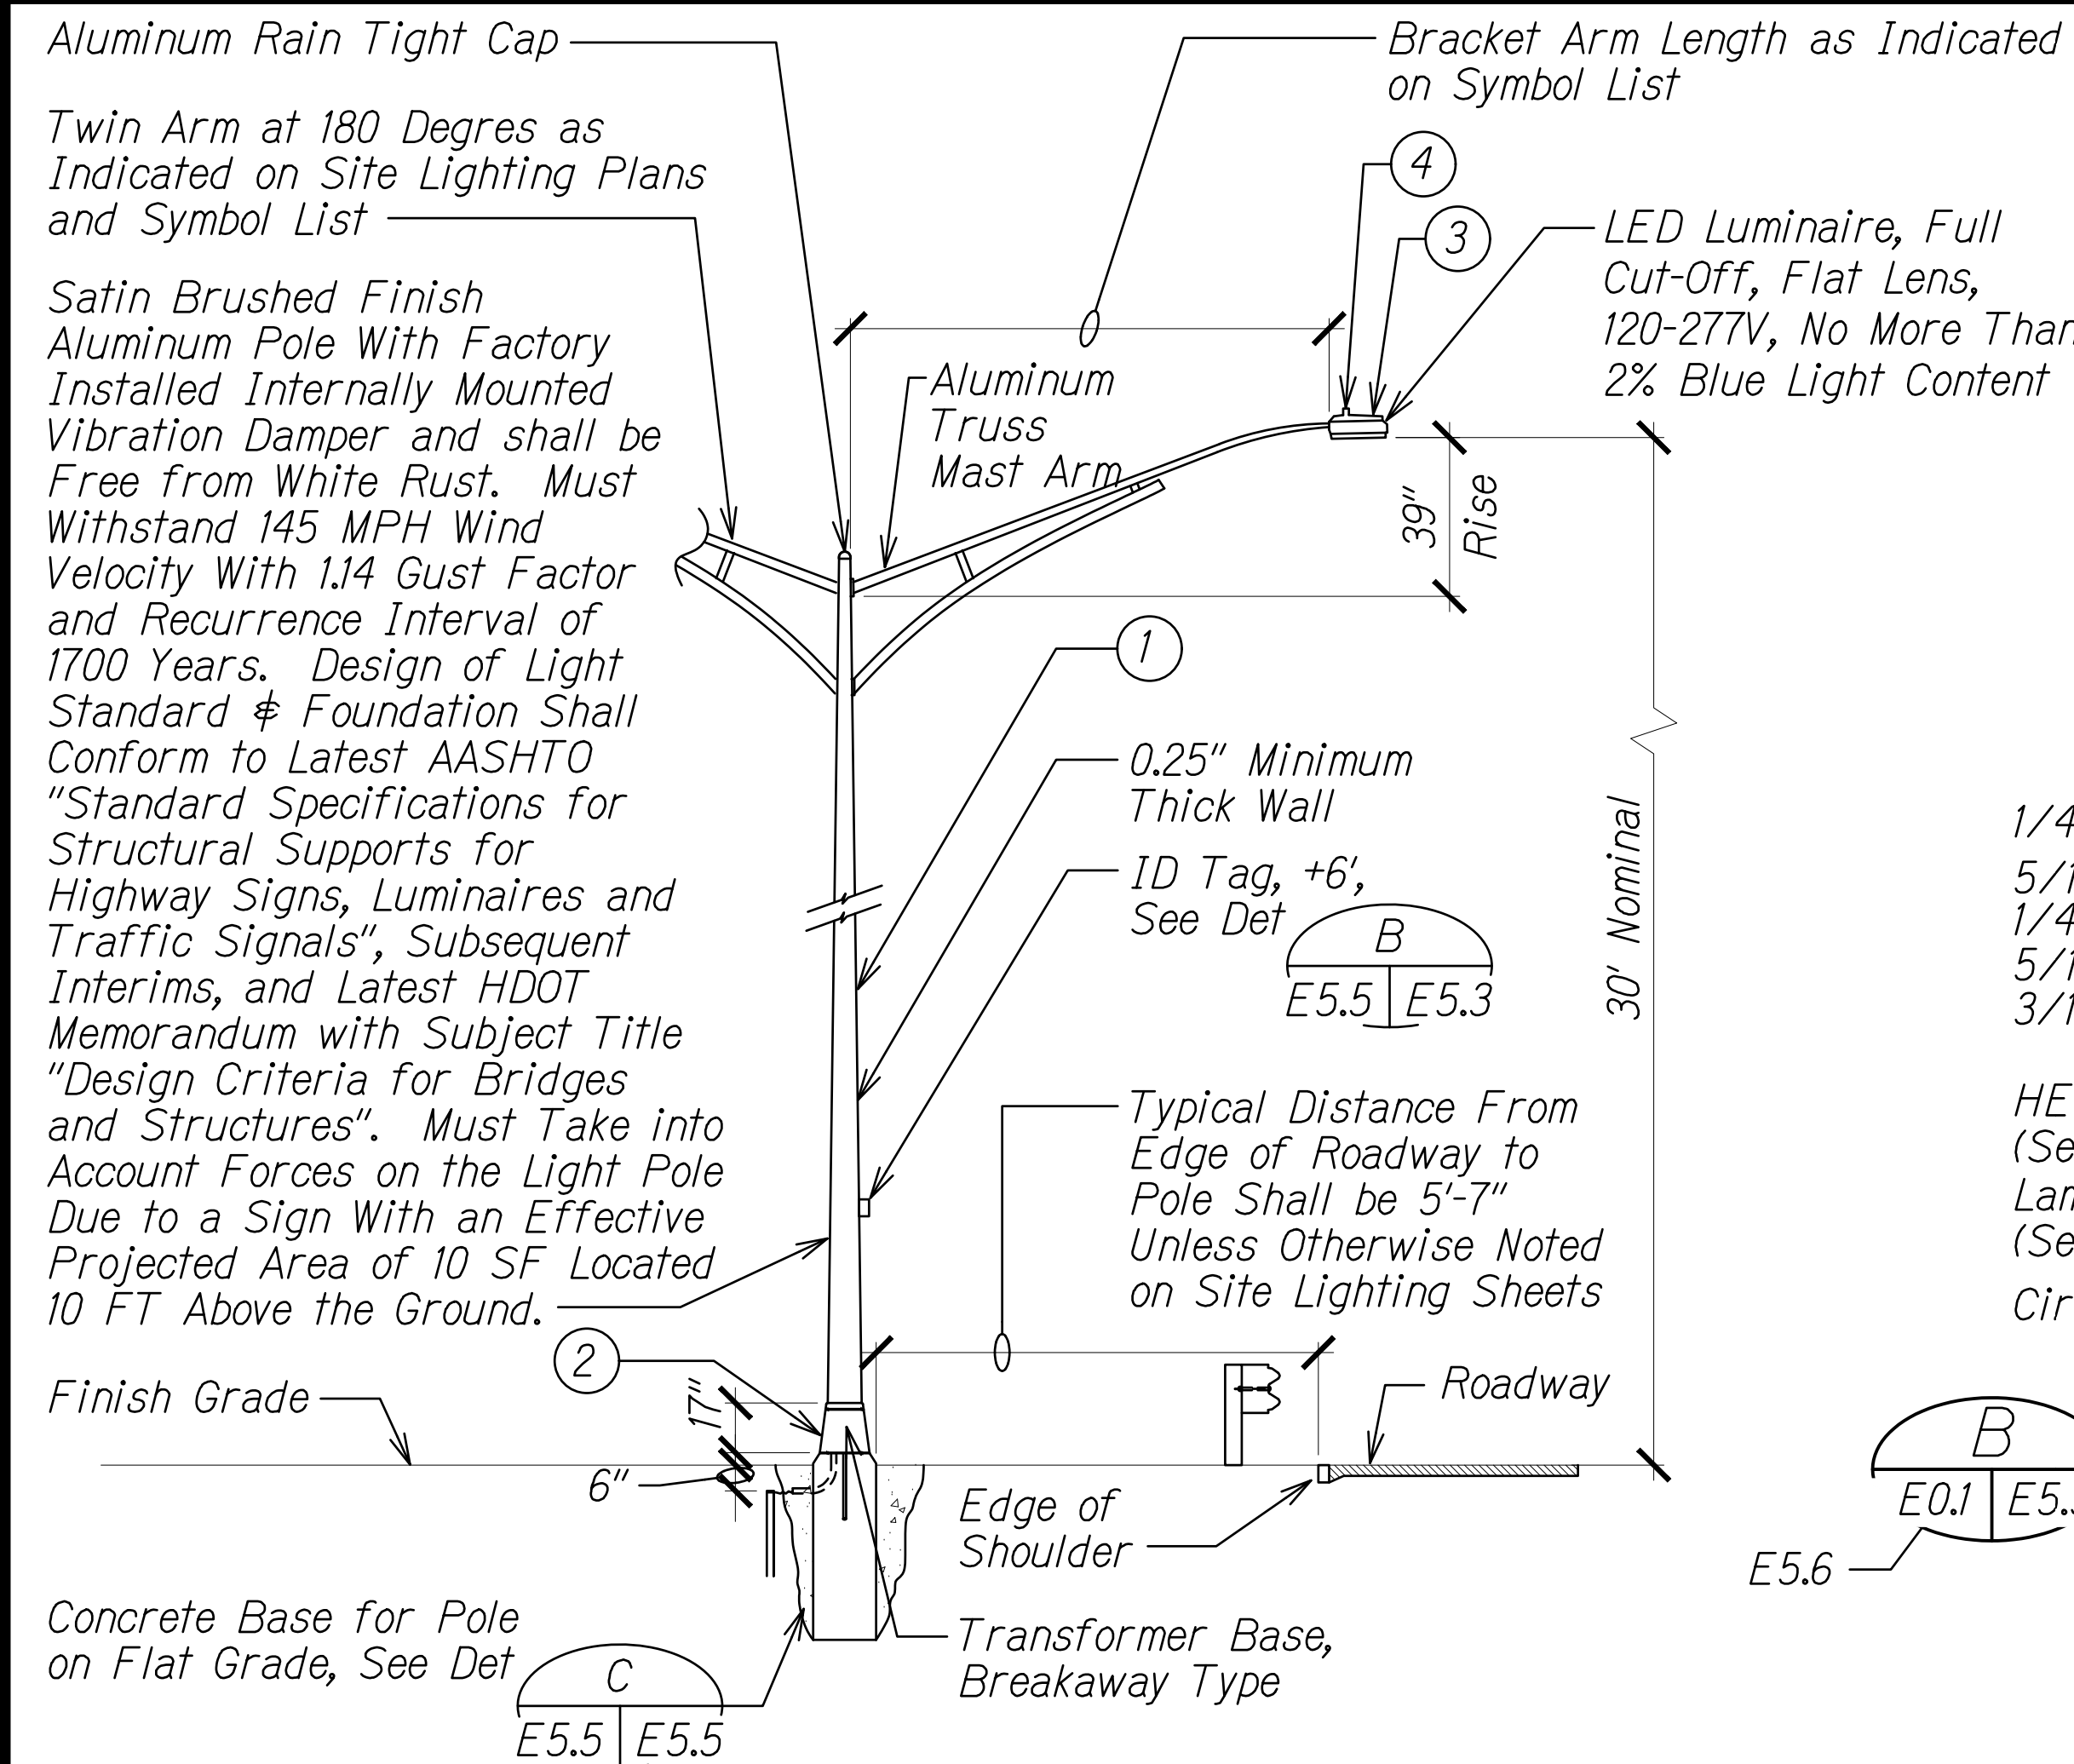 Aluminum Rain Tight Cap
Twin Arm at 180 Degres as
Indicated on Site Lighting Plans
and Symbol List
Satin Brushed Finish
Aluminum Pole With Factory
Installed Internally Mounted
Vibration Damper and shall be
Free from White Rust. Must
Withstand 145 MPH Wind
Velocity With 1.14 Gust Factor
and Recurrence Interval of
1700 Years. Design of Light
Standard & Foundation Shall
Conform to Latest AASHTO
"Standard Specifications for
Structural Supports for
Highway Signs, Luminaires and
Traffic Signals", Subsequent
Interims, and Latest HDOT
Memorandum with Subject Title
"Design Criteria for Bridges
and Structures". Must Take into
Account Forces on the Light Pole
Due to a Sign With an Effective
Projected Area of 10 SF Located
10 FT Above the Ground.
2
Finish Grade
17"
6"
Concrete Base for Pole
on Flat Grade, See Det
C
E5.5 E5.5
Bracket Arm Length as Indicated
on Symbol List
4
3
LED Luminaire, Full
Cut-Off, Flat Lens,
120-277V, No More Than
2% Blue Light Content
Aluminum
Truss
Mast Arm
39"
Rise
1
0.25" Minimum
Thick Wall
ID Tag, +6',
See Det
B
E5.5 E5.3
30' Nominal
Typical Distance From
Edge of Roadway to
Pole Shall be 5'-7"
Unless Otherwise Noted
on Site Lighting Sheets
Roadway
Edge of
Shoulder
Transformer Base,
Breakaway Type
1/4
5/1
1/4
5/1
3/1
HE
(Se
Lan
(Se
Cir
B
E0.1 E5.
E5.6